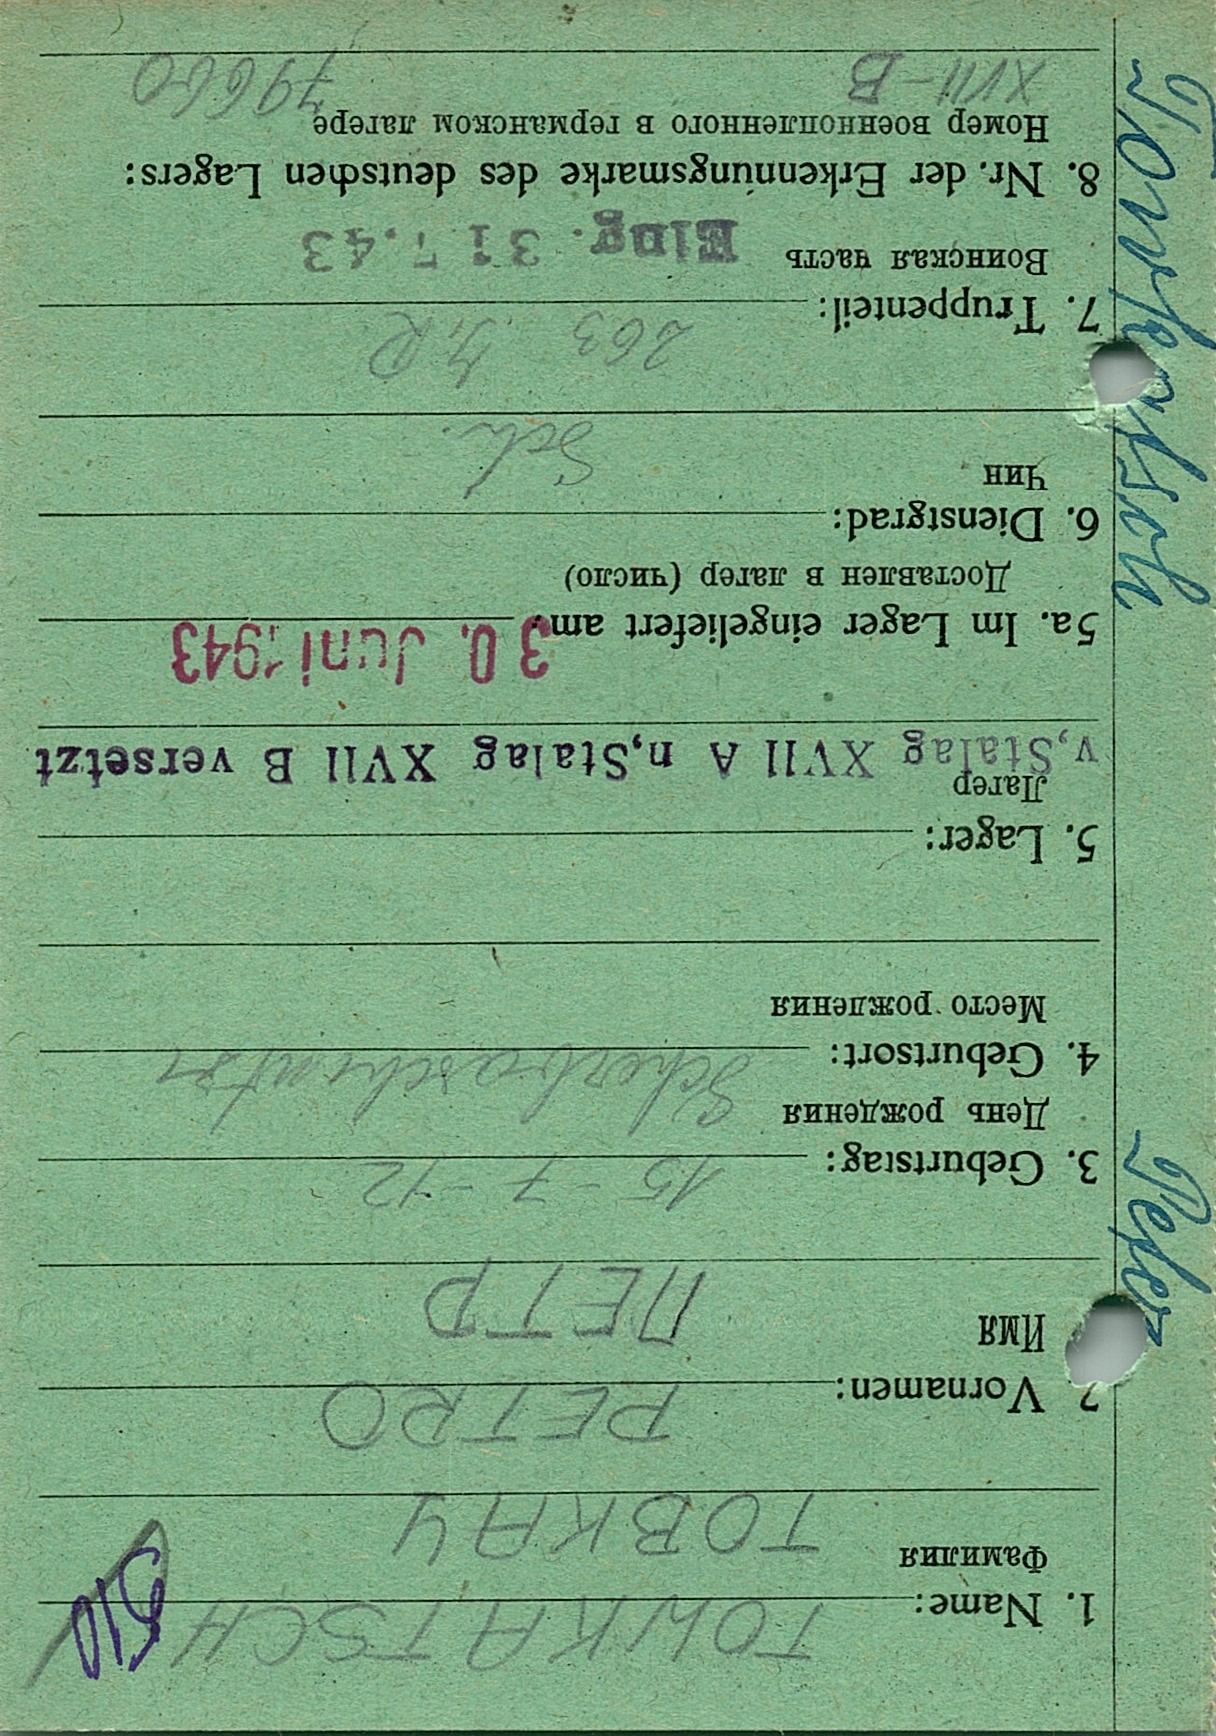 Towkatsch
Peter
1. Name: TOWKATSCH
Фамилия ТОВКАЧ
2 Vornamen: PETRO
Имя ПЕТР
3. Geburtstag: 15-7-12
День рождения
4. Geburtsort:
Место рождения
5. Lager:
Лагер
v,Stalag XVII A n,Stalag XVII B versetzt
5a. Im Lager eingeliefert am: 30. Juni 1943
Доставлен в лагер (число)
6. Dienstgrad:
Чин Sch.
7. Truppenteil: 263 J.R
Воинская часть Eing. 31 7.43
8. Nr. der Erkennungsmarke des deutschen Lagers:
Номер военнопленного в германском лагере
XVII-B 79660